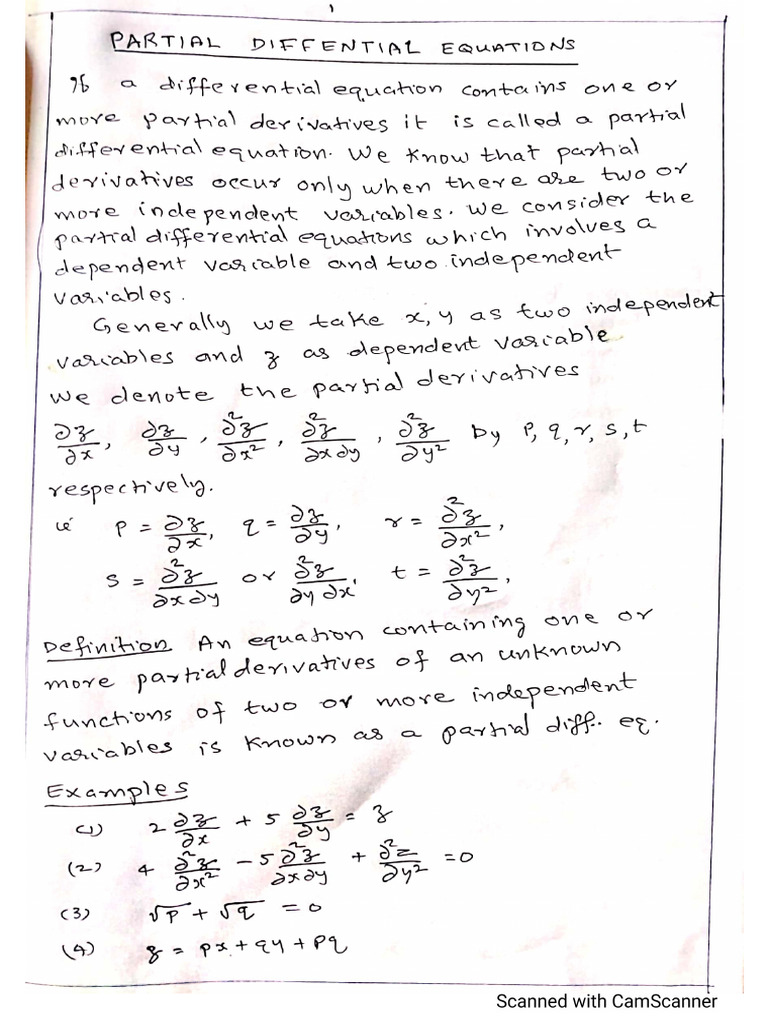 1
PARTIAL DIFFENTIAL EQUATIONS
If a differential equation contains one or
more partial derivatives it is called a partial
differential equation. We know that partial
derivatives occur only when there are two or
more independent variables. We consider the
partial differential equations which involves a
dependent variable and two independent
variables.
Generally we take x, y as two independent
variables and z as dependent variable.
We denote the partial derivatives
∂z/∂x, ∂z/∂y, ∂²z/∂x², ∂²z/∂x∂y, ∂²z/∂y² by p, q, r, s, t
respectively.
ie p = ∂z/∂x, q = ∂z/∂y, r = ∂²z/∂x²,
s = ∂²z/∂x∂y or ∂²z/∂y∂x, t = ∂²z/∂y²,
Definition An equation containing one or
more partial derivatives of an unknown
functions of two or more independent
variables is known as a partial diff. eq.
Examples
(1) 2 ∂z/∂x + 5 ∂z/∂y = z
(2) 4 ∂²z/∂x² - 5 ∂²z/∂x∂y + ∂²z/∂y² = 0
(3) √p + √q = 0
(4) z = px + qy + pq
Scanned with CamScanner